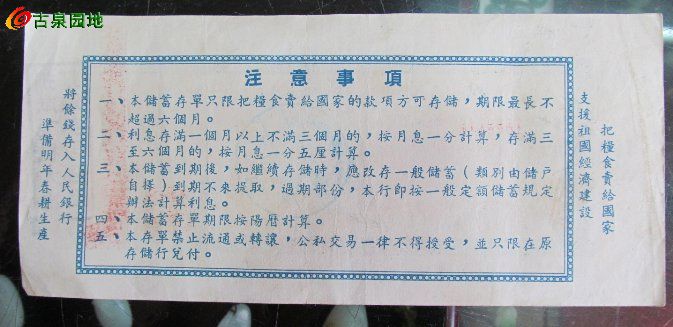 古泉园地
注意事項
一、本儲蓄存單只限把糧食賣給國家的款項方可存儲，期限最長不
超過六個月。
二、利息存滿一個月以上不滿三個月的，按月息一分計算，存滿三
至六個月的，按月息一分五厘計算。
三、本儲蓄到期後，如繼續存儲時，應改存一般儲蓄（類別由儲户
自擇）到期不來提取，過期部份，本行即按一般定額儲蓄規定
辦法計算利息。
四、本儲蓄存單期限按陽曆計算。
五、本存單禁止流通或轉讓，公私交易一律不得授受，並只限在原
存儲行兑付。
把糧食賣給國家
支援祖國經濟建設
將餘錢存入人民銀行
準備明年春耕生産